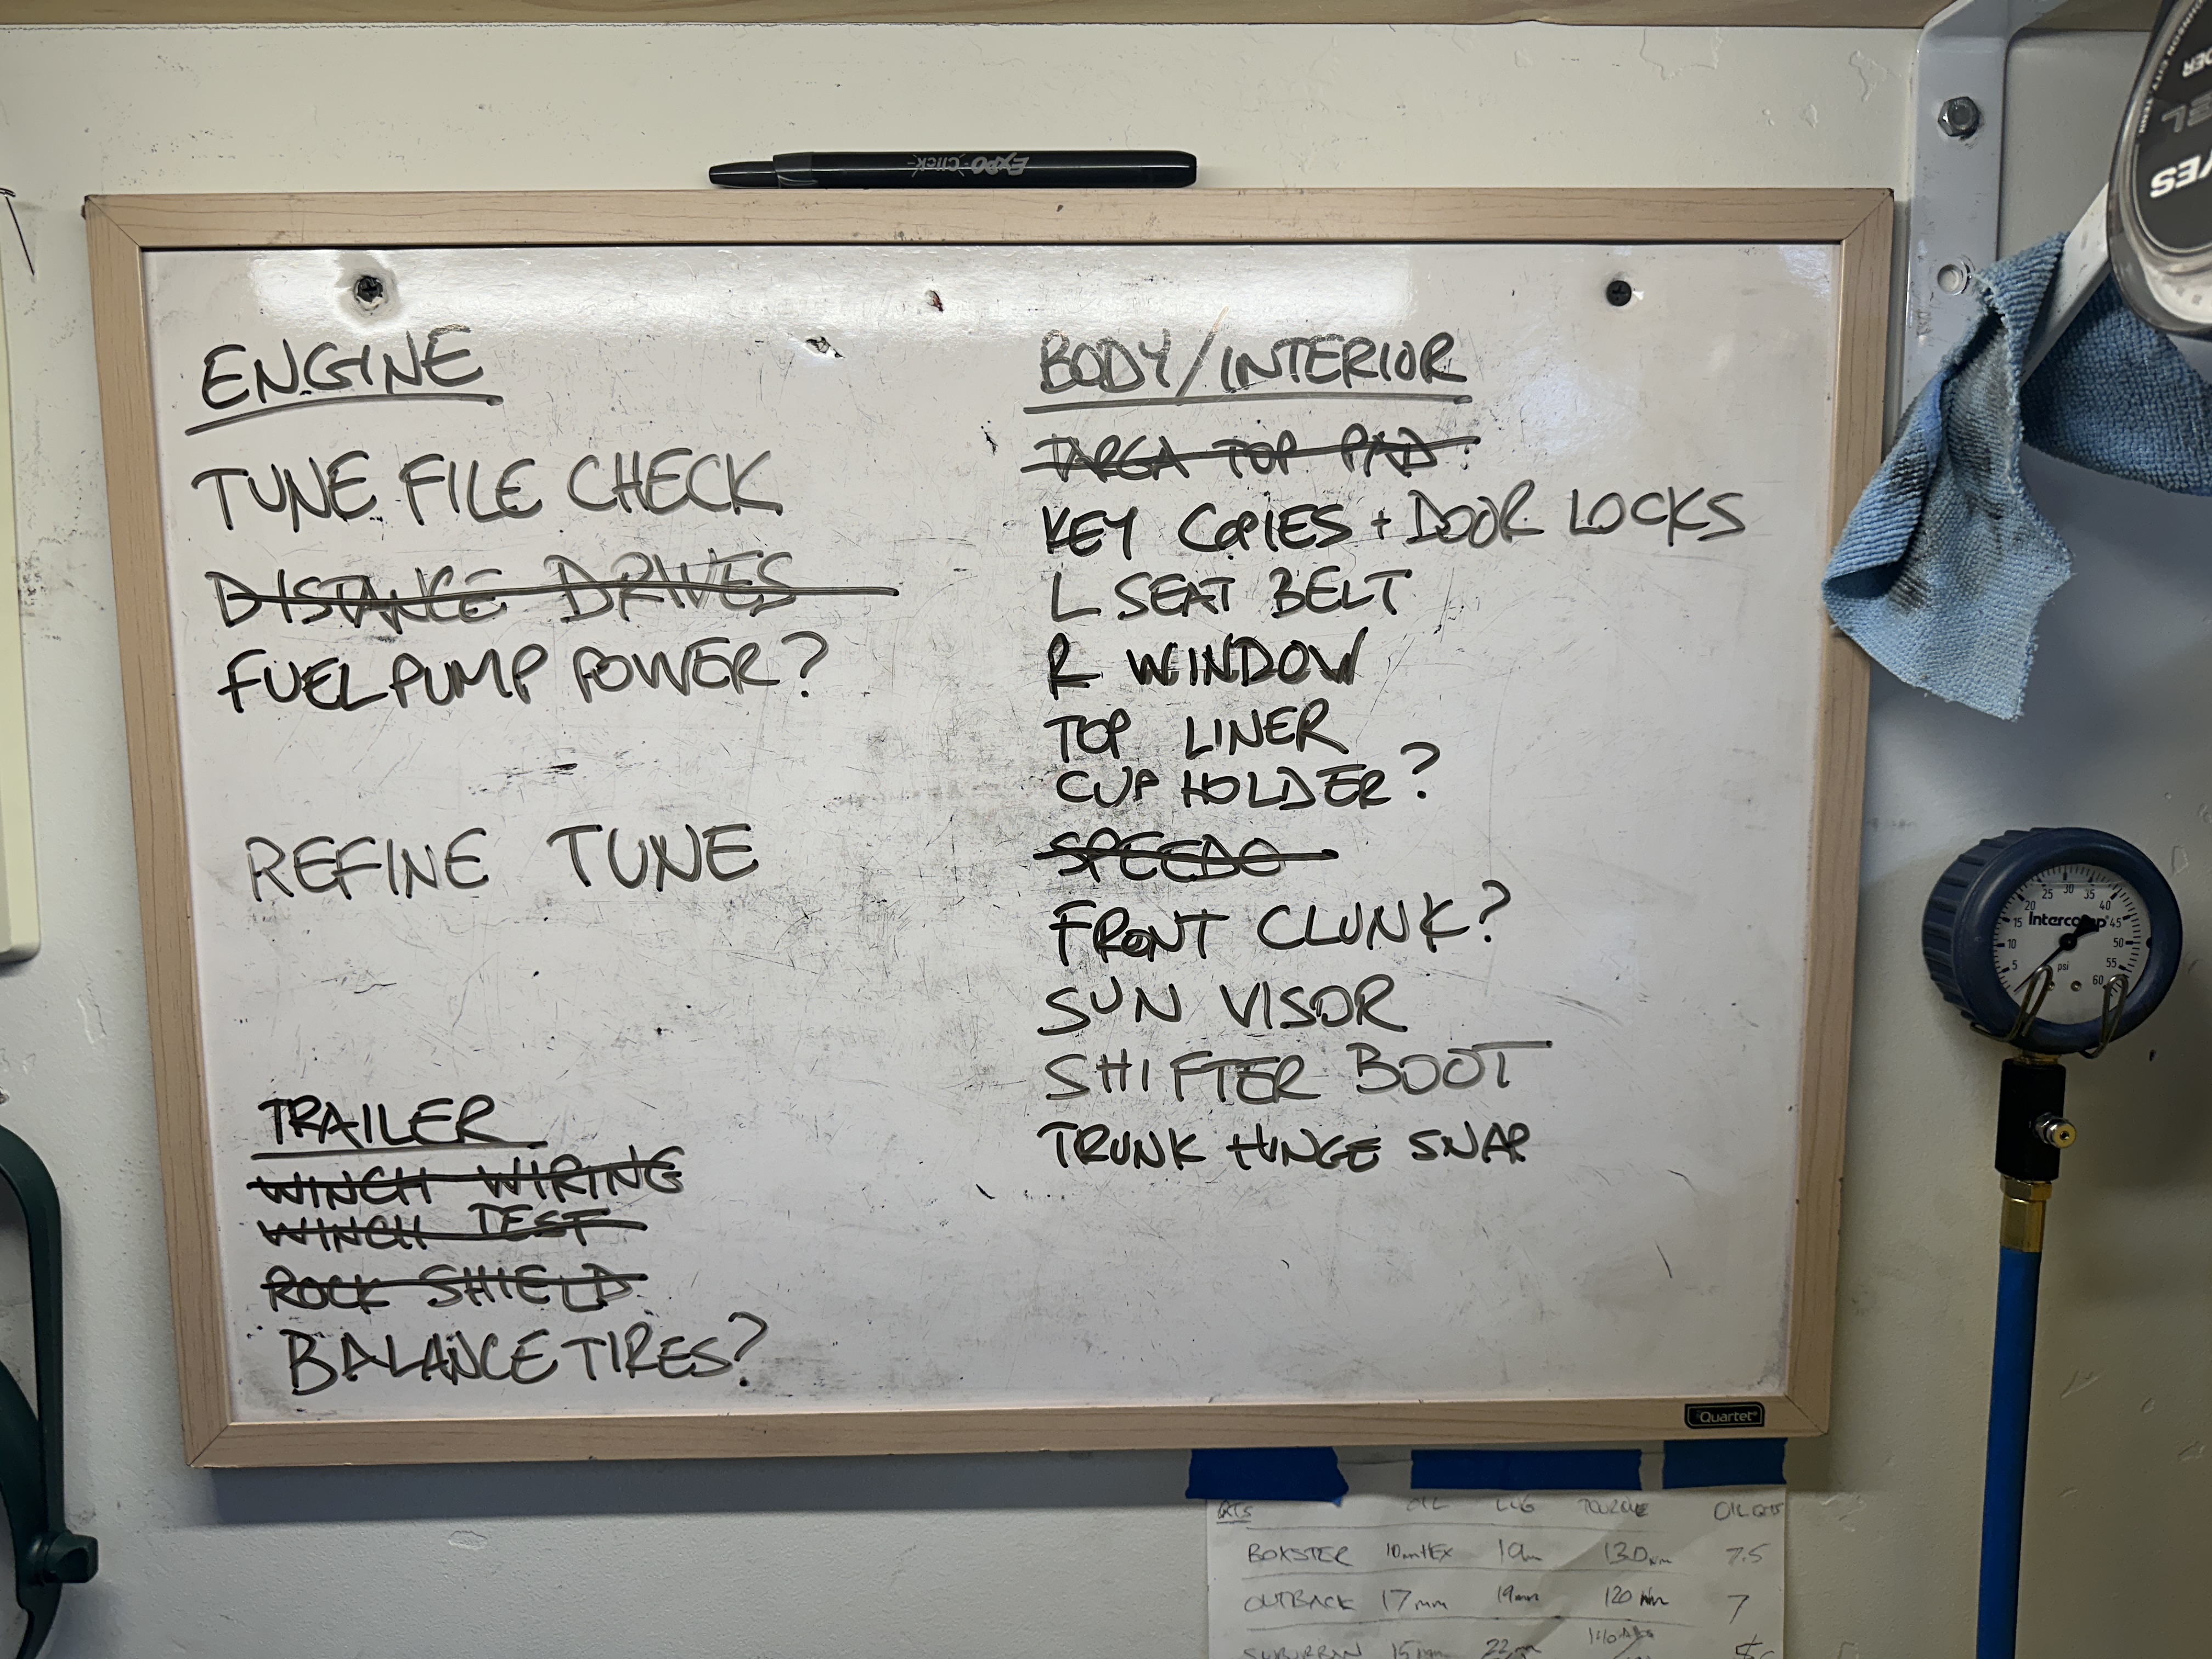 EXPO Click
ENGINE
TUNE FILE CHECK
DISTANCE DRIVES
FUEL PUMP POWER?
REFINE TUNE
TRAILER
WINCH WIRING
WINCH TEST
ROCK SHIELD
BALANCE TIRES?
BODY/INTERIOR
TARGA TOP PAD
KEY COPIES + DOOR LOCKS
L SEAT BELT
R WINDOW
TOP LINER
CUP HOLDER?
SPEEDO
FRONT CLUNK?
SUN VISOR
SHIFTER BOOT
TRUNK HINGE SNAP
Quartet
5 10 15 20 25 30 35 40 45 50 55 60
Intercomp
psi
OIL LUG TORQUE OIL QTS
BOXSTER 10mm HEX 19m 130 Nm 7.5
OUTBACK 17mm 19mm 120 Nm 7
SUBURBAN 15m 22m